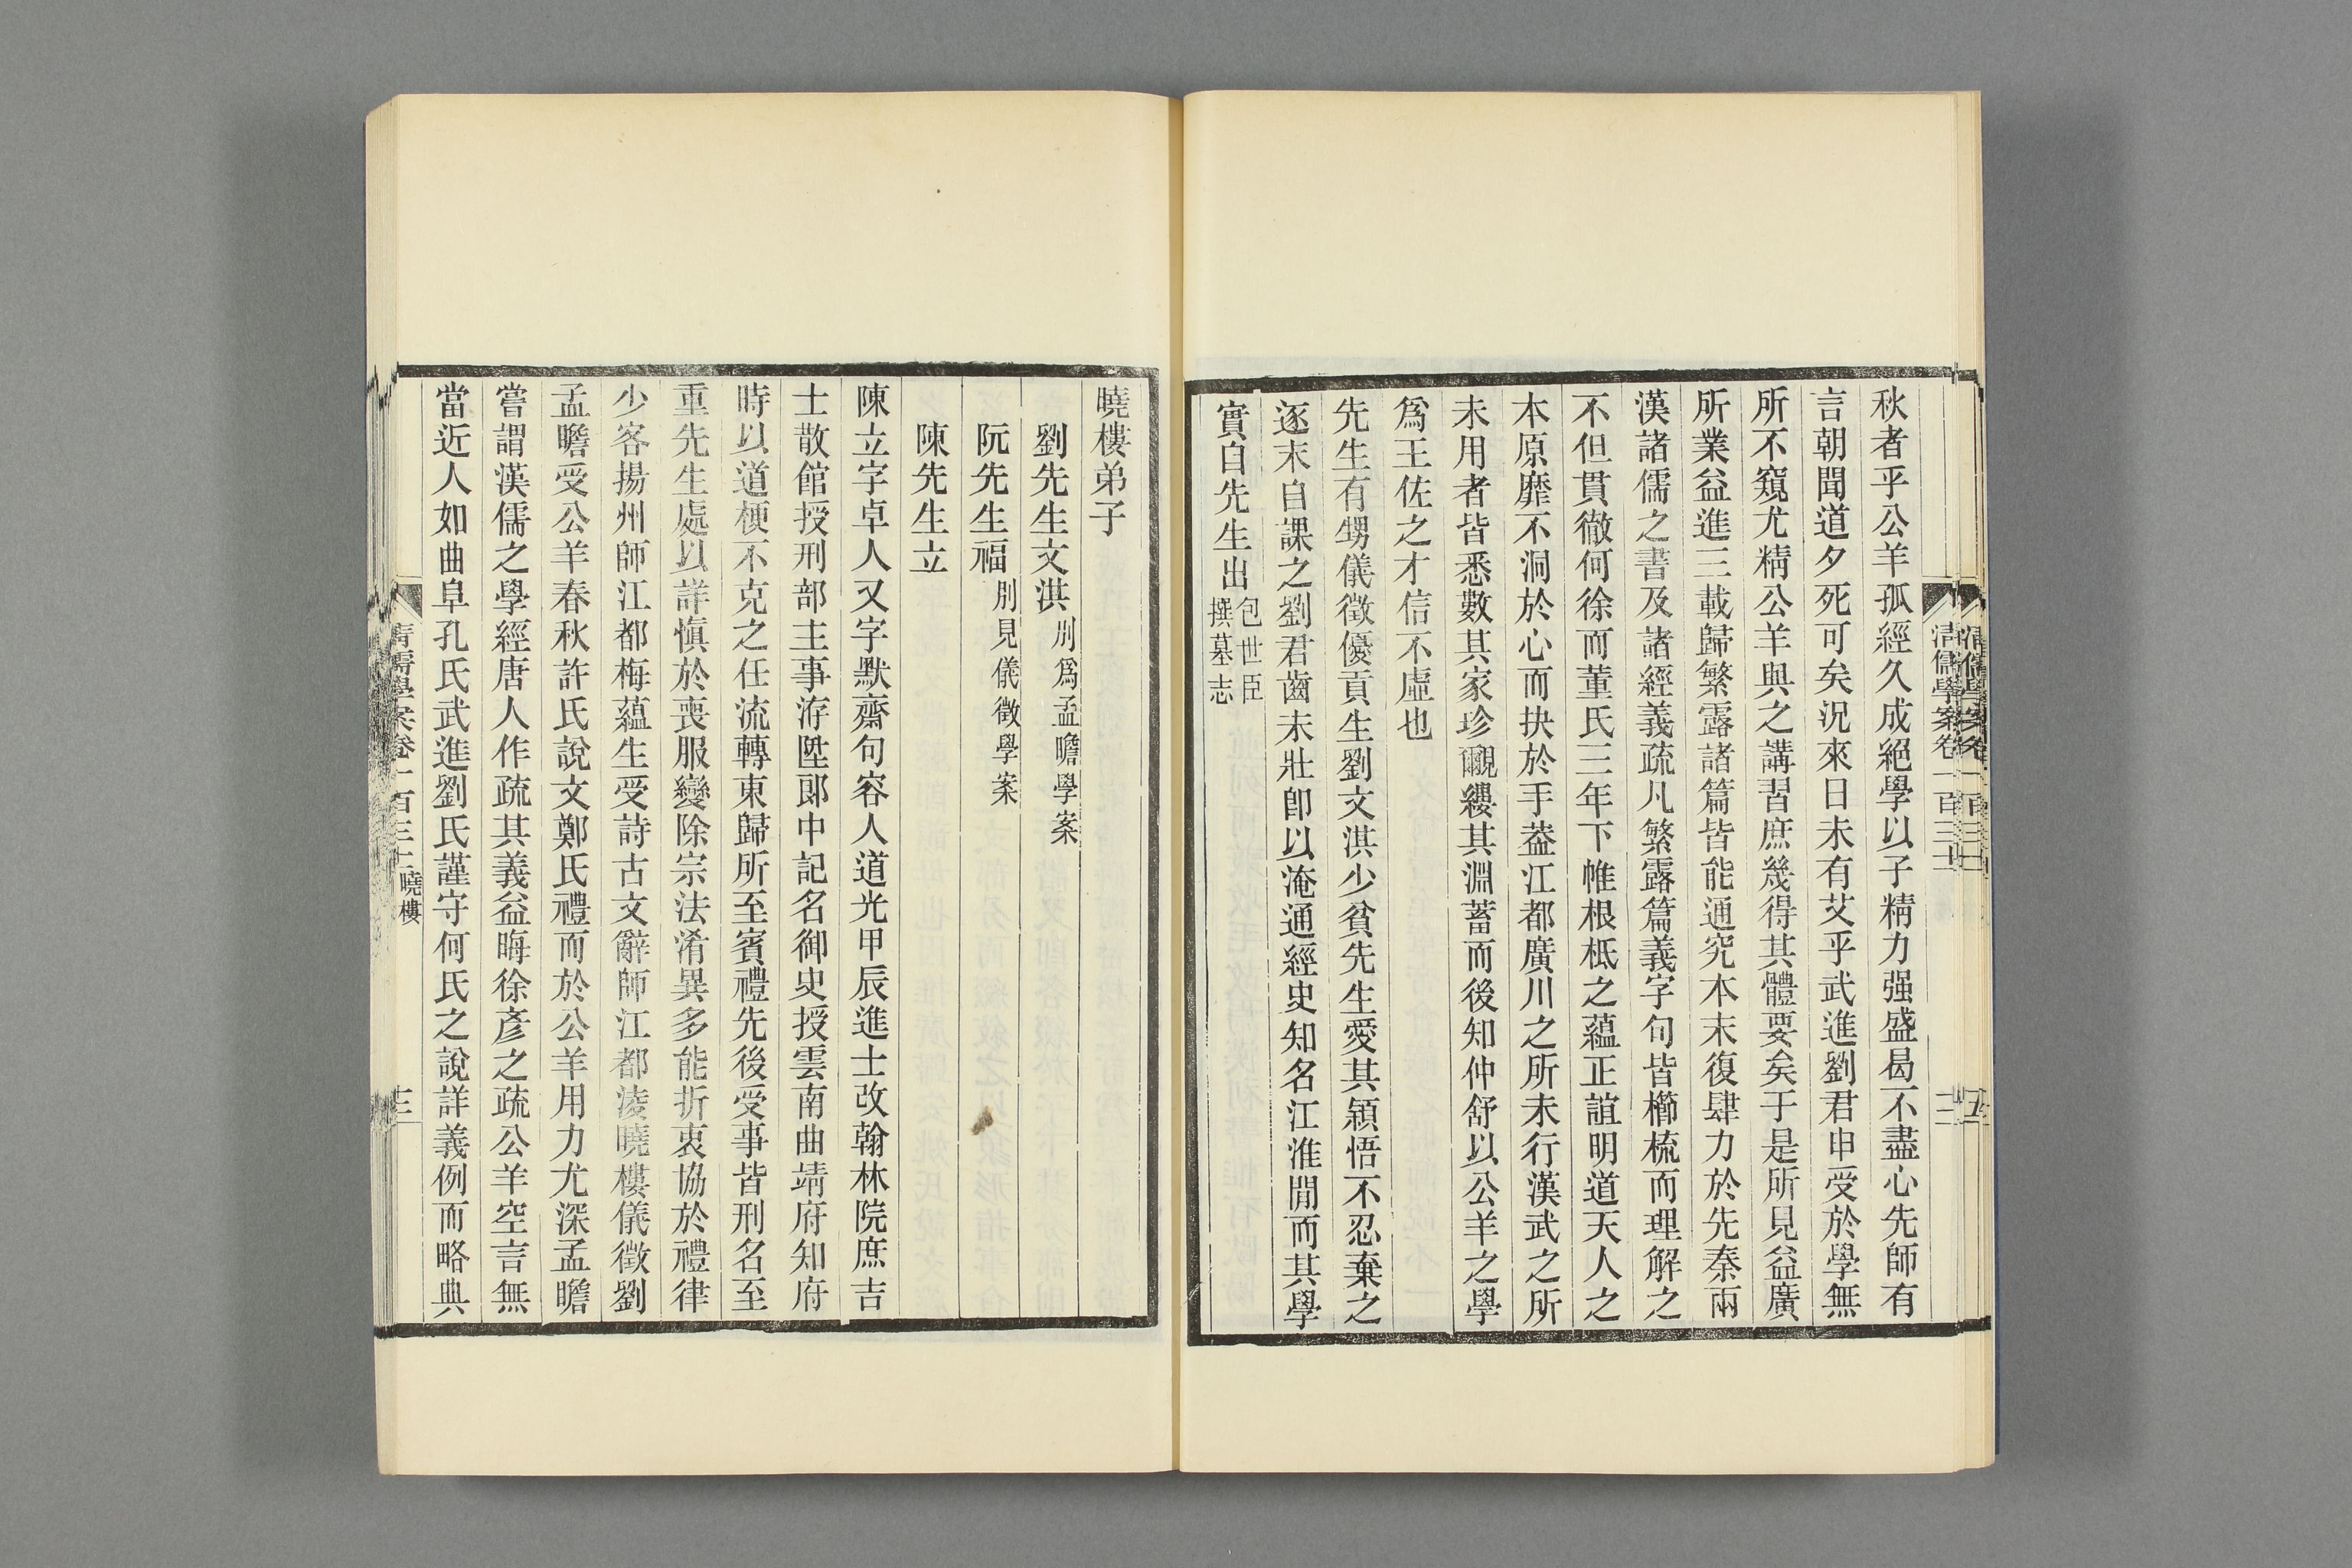 秋者乎公羊孤經久成絕學以子精力强盛曷不盡心先師有
言朝聞道夕死可矣況來日未有艾乎武進劉君申受於學無
所不窺尤精公羊與之講習庶幾得其體要矣于是所見益廣
所業益進三載歸繁露諸篇皆能通究本末復肆力於先秦兩
漢諸儒之書及諸經義疏凡繁露篇義字句皆櫛梳而理解之
不但貫徹何徐而董氏三年下帷根柢之蘊正誼明道天人之
本原靡不洞於心而抉於手葢江都廣川之所未行漢武之所
未用者皆悉數其家珍覼縷其淵蓄而後知仲舒以公羊之學
爲王佐之才信不虛也
先生有甥儀徵優貢生劉文淇少貧先生愛其穎悟不忍棄之
逐末自課之劉君齒未壯卽以淹通經史知名江淮閒而其學
實自先生出包世臣
撰墓志
曉樓弟子
劉先生文淇別爲孟瞻學案
阮先生福別見儀徵學案
陳先生立
陳立字卓人又字默齋句容人道光甲辰進士改翰林院庶吉
士散館授刑部主事洊陞郎中記名御史授雲南曲靖府知府
時以道梗不克之任流轉東歸所至賓禮先後受事皆刑名至
重先生處以詳愼於喪服變除宗法淆異多能折衷協於禮律
少客揚州師江都梅蘊生受詩古文辭師江都淩曉樓儀徵劉
孟瞻受公羊春秋許氏說文鄭氏禮而於公羊用力尤深孟瞻
嘗謂漢儒之學經唐人作疏其義益晦徐彥之疏公羊空言無
當近人如曲阜孔氏武進劉氏謹守何氏之說詳義例而略典
清儒學案卷一百三十一曉樓